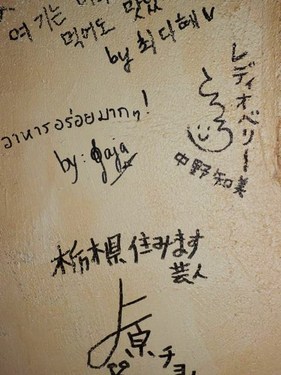 여기는
먹어도 맛있
by 최다혜
レディオベリー
中野知美
อาหารอร่อยมากๆ!
by: gaja
栃木県住みます
芸人
上原チョ